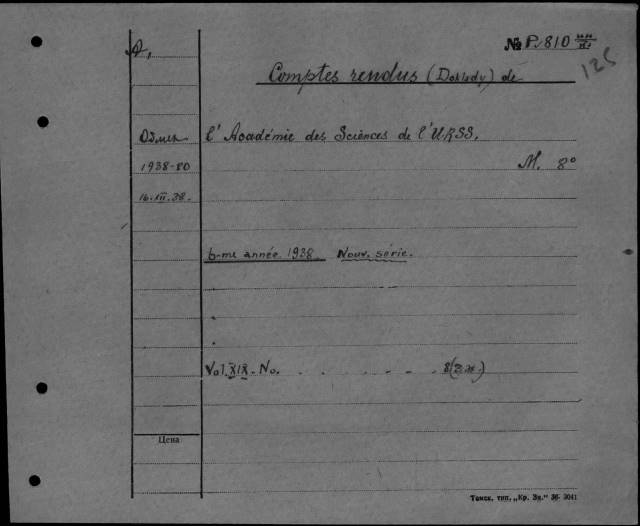 А,
№ P. 810
125
Comptes rendus (Doklady) de
Обмен
l'Académie des Sciences de l'URSS.
1938-80
M. 8°
16.XII.38.
6-me année. 1938. Nouv. série.
Vol. XIX. No. . . . . . . . 8(2эк.)
Цена
Томск. тип. „Кр. Зн." 36. 3041